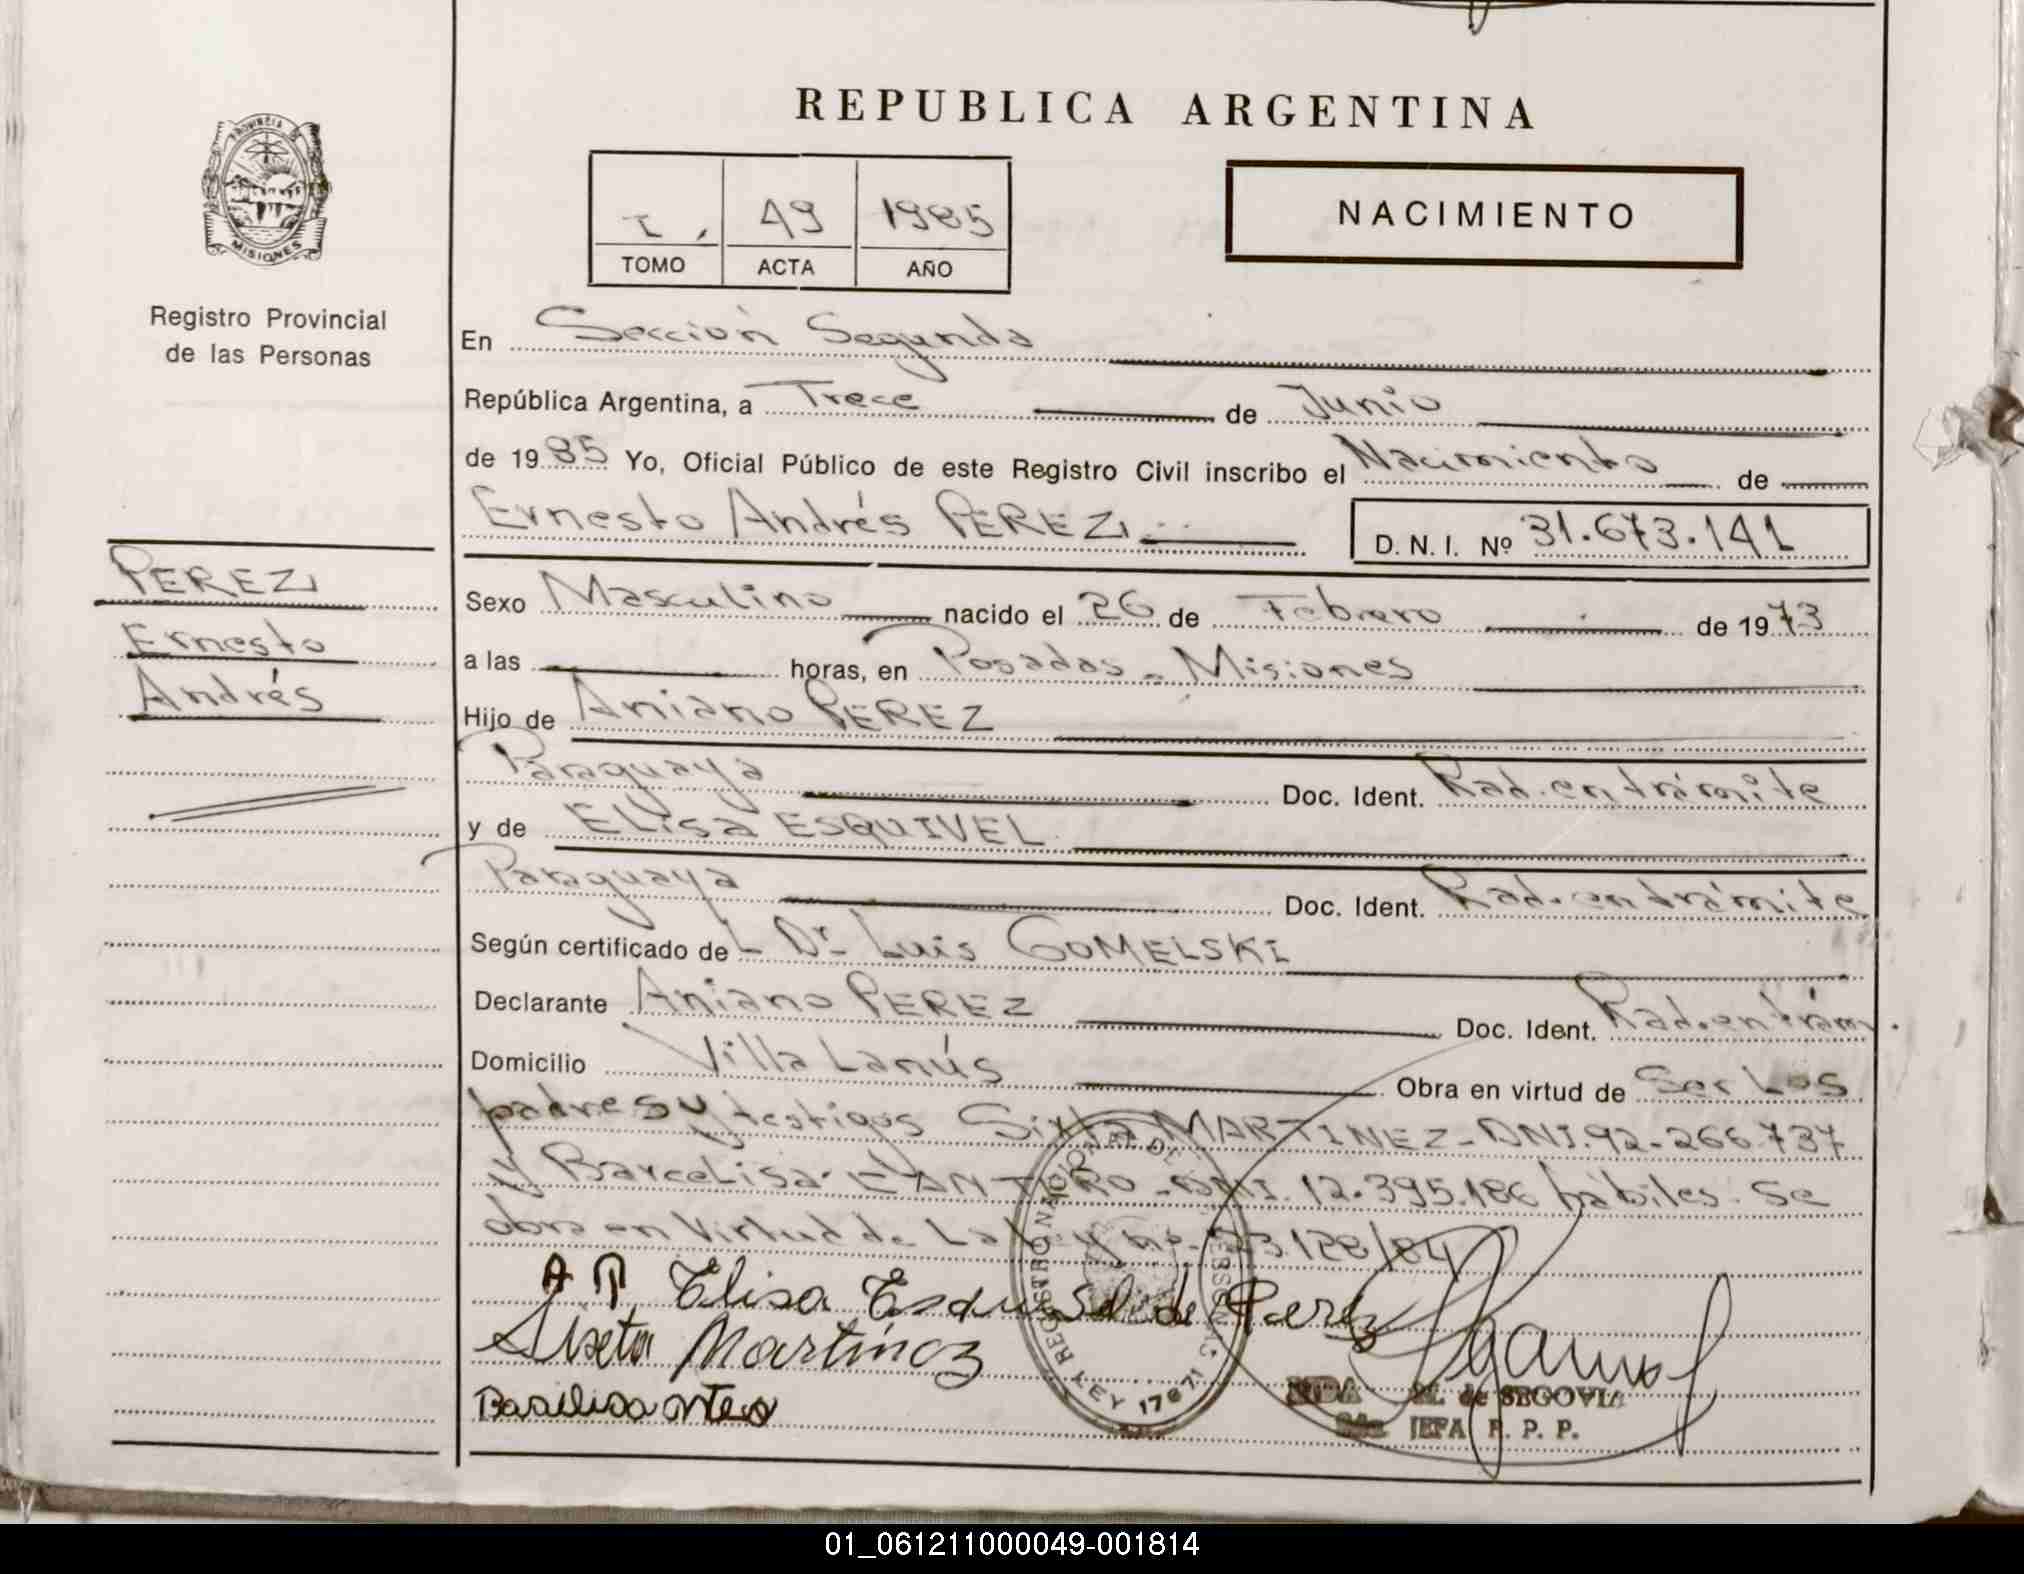 REPUBLICA ARGENTINA
PROVINCIA DE
MISIONES
Registro Provincial
de las Personas
I. 49 1985
TOMO ACTA AÑO
NACIMIENTO
En Sección Segunda
República Argentina, a Trece de Junio
de 1985 Yo, Oficial Público de este Registro Civil inscribo el Nacimiento de
Ernesto Andrés PEREZ D. N. I. Nº 31.673.141
PEREZ
Ernesto
Andrés
Sexo Masculino nacido el 26 de Febrero de 1973
a las horas, en Posadas - Misiones
Hijo de Aniano PEREZ
Paraguaya Doc. Ident. Rad. en trámite
y de Elisa ESQUIVEL
Paraguaya Doc. Ident. Rad. en trámite
Según certificado de L Dr. Luis GOMELSKI
Declarante Aniano PEREZ Doc. Ident. Rad. en trám.
Domicilio Villa Lanús Obra en virtud de Ser los
padres y testigos Sixta MARTINEZ - DNI. 92-266.737
y DNI. 12.395.186 hábiles. Se
obra en Virtud de La Ley nº 23.128/84
A P, Elisa Esquivel de Perez
Sixta Martínez
Basilisa
REGISTRO NACIONAL DE LAS PERSONAS
LEY 17671
M. de SEGOVIA
JEFA R. P. P.
01_061211000049-001814